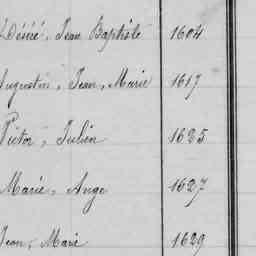 Désiré, Jean Baptiste 1604
Augustin, Jean, Marie 1617
Victor, Julien 1625
Marie, Ange 1627
Jean, Marie 1629